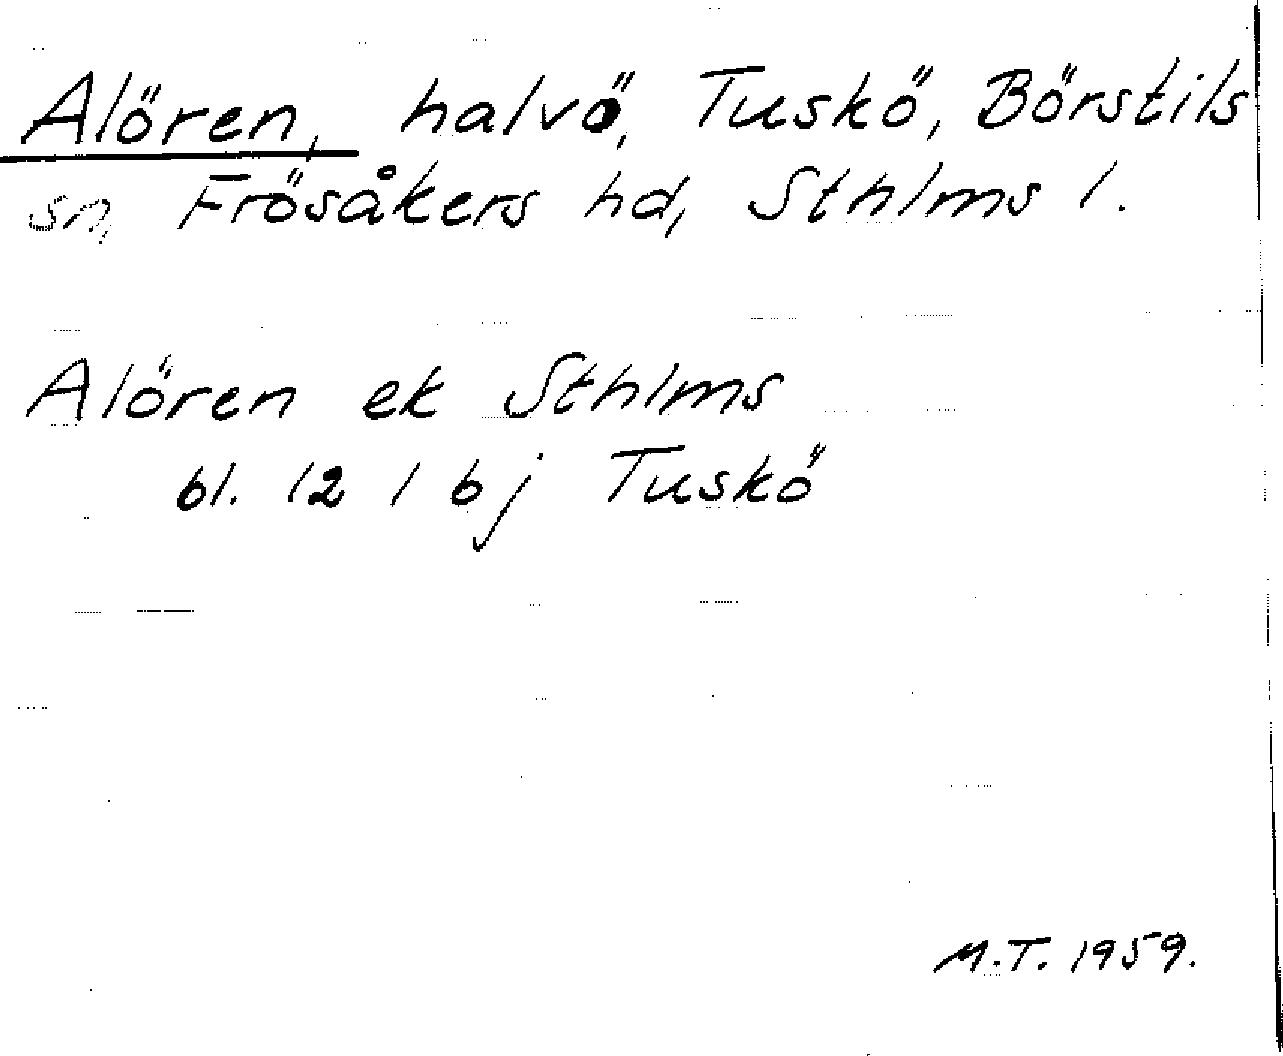 Alören, halvö, Tuskö, Börstils
sn, Frösåkers hd, Sthlms l.
Alören ek Sthlms
bl. 12 l bj Tuskö
M.T. 1959.